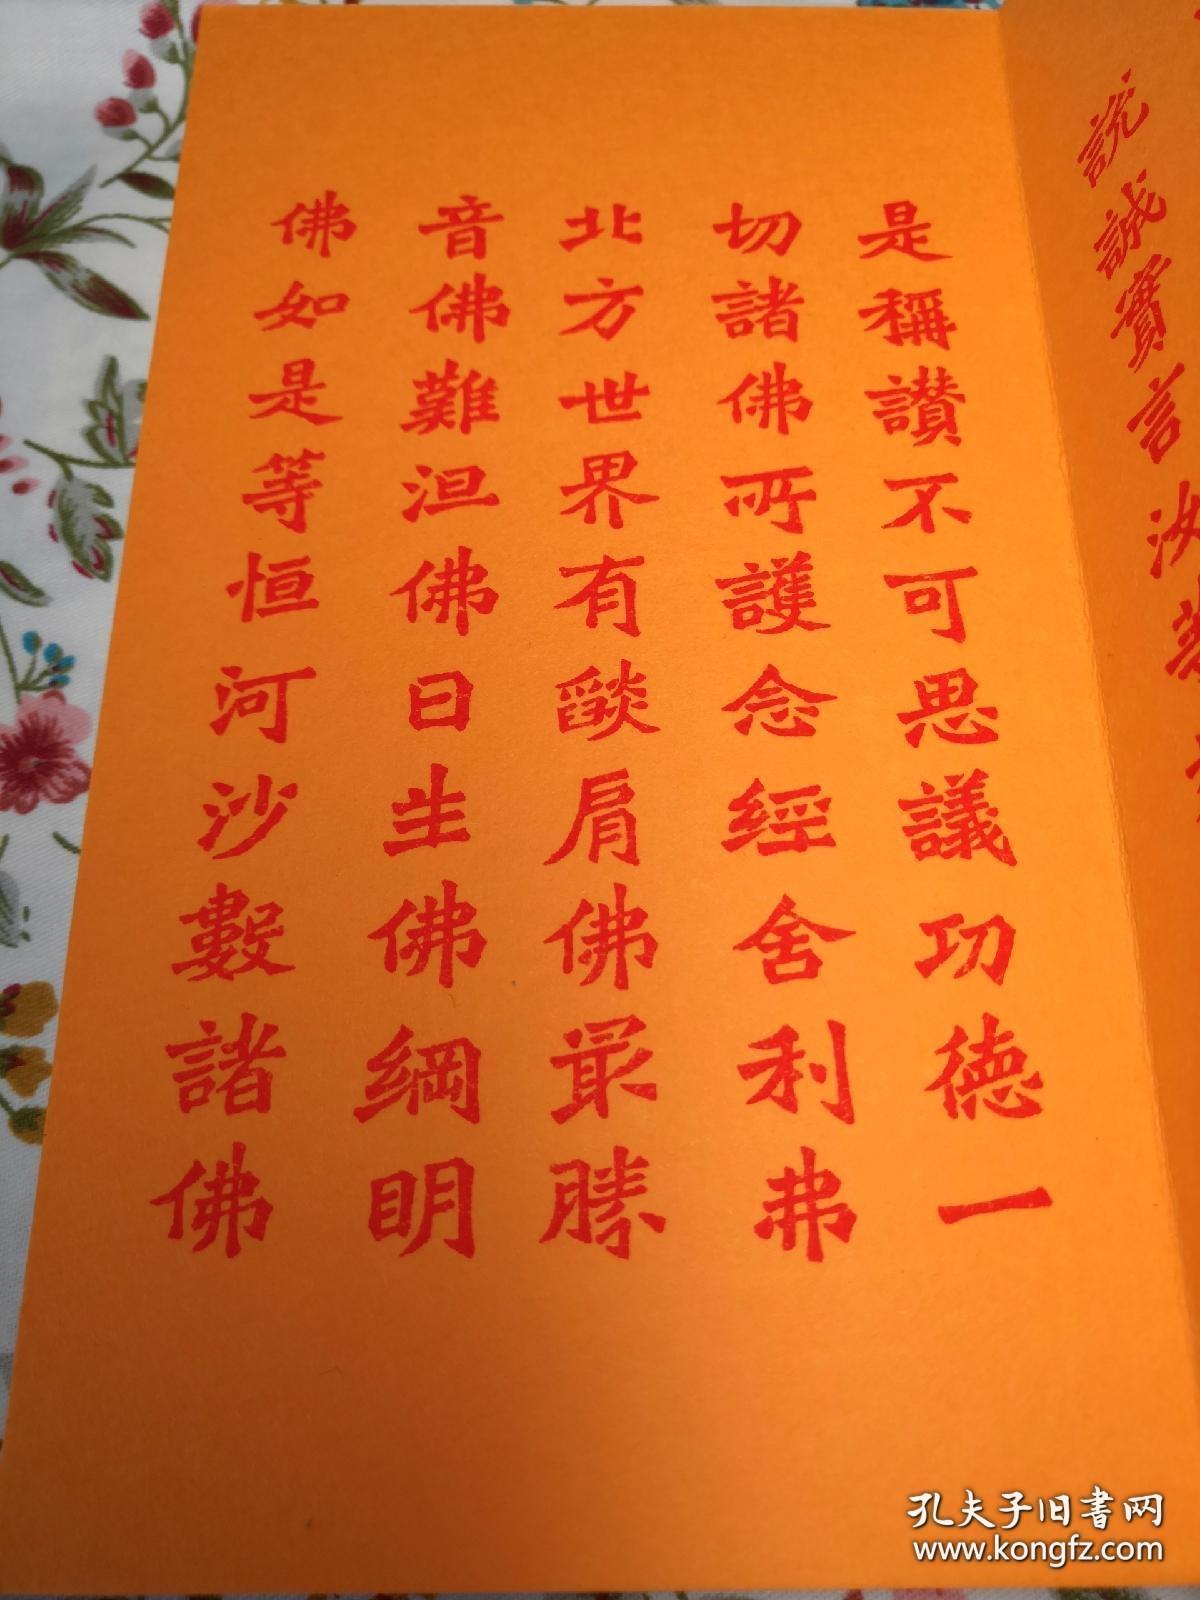 說誠實言汝等
是稱讚不可思議功德一
切諸佛所護念經舍利弗
北方世界有燄肩佛最勝
音佛難沮佛日生佛網明
佛如是等恒河沙數諸佛
孔夫子旧书网
www.kongfz.com